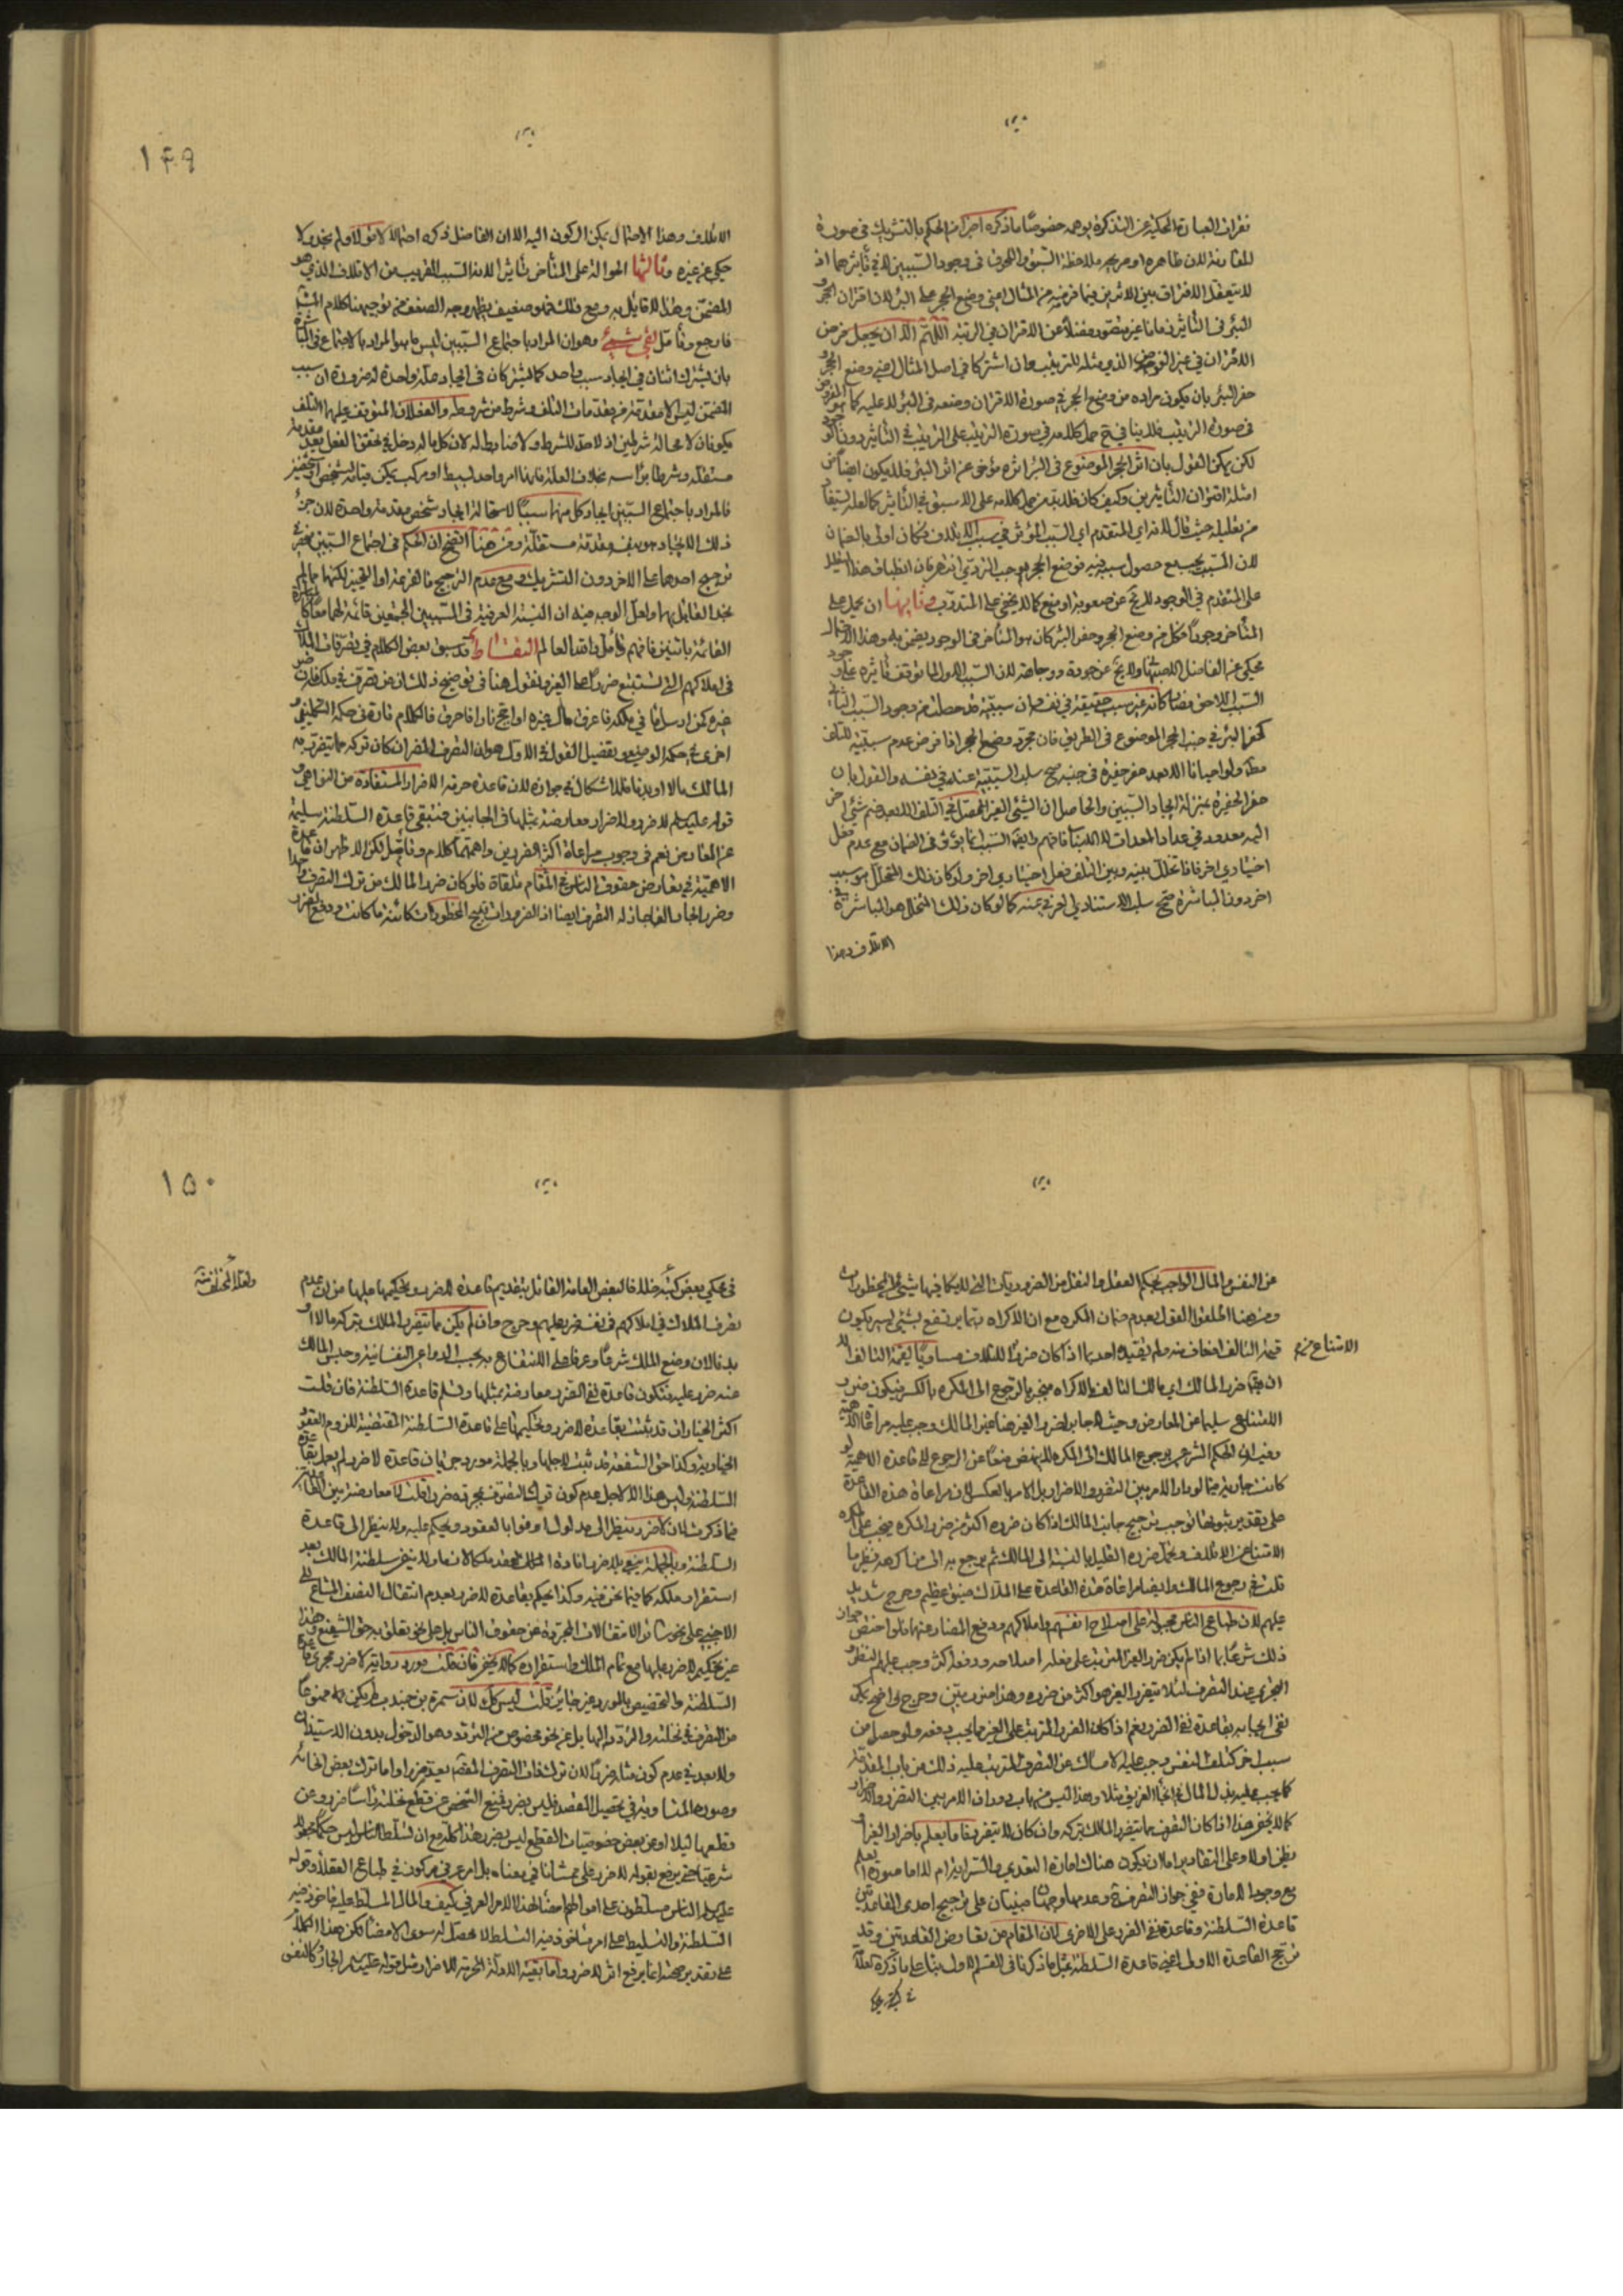 ثم ان العبارة المحكية عن التذكرة يوهمه خصوصا ما ذكره اخيرا من الحكم بالتشريك في صورة
المقارنة لان ظاهره او صريحه ملاحظة السبق واللحوق في وجود السببين لا في تأثيرهما اذ
لا يتعقل الافتراق بين الاثرين فيما فرضه من المثال اعني وضع الحجر على البئر لان اقتران الحجر
البئر في التأثير زمانا غير متصور فضلا عن الاقتران في الرتبة اللهم الا ان يجعل غرض
الاقتران في غير الفرض الذي مثله للترتيب وان اشتركا في اصل المثال اعني وضع الحجر و
حفر البئر بان يكون مراده من وضع الحجر في صورة الاقتران وضعه في البئر لا عليه كما هو المفروض
في صورة الترتيب فلا ينافي ح حمل كلامه في صورة الترتيب على الترتيب في التأثير دون الوجود
لكن يمكن القول بان اثر الحجر الموضوع في البئر اثره مؤخر عن اثر البئر فلا يكون ايضا من
امثلة اقتران التأثيرين وكيف كان فلا بد من حمل كلامه على الاسبق في التأثير كما لعله يستفاد
من تعليله حيث قال لانه اي المتقدم اي السبب المؤثر في سبب الاتلاف فكان اولى بالضمان
لان المسبب يجب مع حصول سببه فيه فوضع الحجر يوجب التردي انتهى فان انطباق هذا التعليل
على المتقدم في الوجود لا يخ عن صعوبة او منع كما لا يخفى على المتدرب وثانيها ان يحمل على
المتأخر وجودا فكل من وضع الحجر وحفر البئر كان هو المتأخر في الوجود يضمن به وهذا الاحتمال
محكي عن الفاضل الاصبهاني ولا يخ عن جودة ووجاهة لان السبب الاول لما توقف تأثيره على وجود
السبب اللاحق فضا كانه غير سبب حقيقة في نفسه وان سببيته قد حصلت من وجود السبب الثاني
كحفر البئر في جنب الحجر الموضوع في الطريق فان مجرد وضع الحجر اذا فرض عدم سببيته للتلف
مطلقا ولو احيانا الا بعد حفر حفيرة في جنبه صح سلب السببية عنه في نفسه والقول بان
حفر الحفيرة بمنزلة ايجاد السببين والحاصل ان الشيء الغير المقتضي للتلف الا بعد ضم شيء اخر
اليه معدود في عداد المعدات لا الاسباب فافهم وايضا السبب انما يؤثر في الضمان مع عدم فعل
اختياري اخر فاذا تخلل بينه وبين التلف فعل اختياري اخر ولو كان ذلك المتخلل هو سبب
اخر دون المباشرة صح سلب الاستناد الى العرف عنه كما لو كان ذلك المتخلل هو المباشرة في
الاتلاف وهذا
١٤٩
الاتلاف وهذا الاحتمال يمكن الركون اليه الا ان الفاضل ذكره احتمالا لا قولا ولم يحك ولا
حكي عن غيره وثالثها الحوالة على المتأخر تأثيرا لانه السبب القريب من الاتلاف الذي هو
المضمن وهذا لا قائل به ومع ذلك فهو ضعيف يظهر وجه الضعف من توجيهنا كلام المشهور
فارجع وتأمل بقي شيء وهو ان المراد باجتماع السببين ليس ما هو المراد بالاجتماع في المباشرة
بان يشترك اثنان في ايجاد سبب واحد كما يشتركان في ايجاد علة واحدة لضرورة ان سبب
الضمان ليس الا مقدمة من مقدمات التلف وشرط من شروطه والفعلان المتوقف عليهما التلف
يكونان لا محالة شرطين اذ لا حد للشرط ولا ضابطة لان كل ما له دخل في تحقق الفعل يعد مقدمة
مستقلة وشرطا برأسه بخلاف العلة فانها امر واحد بسيط او مركب يمكن قيامه بشخص او شخصين
فالمراد باجتماع السببين ايجاد كل منهما سببا لاستحالة ايجاد شخص مقدمة واحدة لان جزء
ذلك الايجاد هو بنفسه مقدمة مستقلة ومن هنا اتضح ان الحكم في اجتماع السببين هو
ترجيح احدهما على الاخر دون التشريك ومع عدم الترجيح فالقرعة او التخيير لكنهما مما لم
نجد القائل بهما ولعل الوجه فيه ان النسبة العرفية في السببين المجتمعين قائمة بهما معا كالمباشرة
القائمة باثنين فافهم فتأمل والله العالم التقاط قد سبق بعض الكلام في تصرفات الملاك
في املاكهم التي تستتبع ضررا على الغير ونقول هنا في توضيح ذلك ان من تصرف في ملكه فاضر
غيره كمن ارسل ماء في ملكه فاغرق مال غيره او اجج نارا فاحرق فالكلام تارة في حكمه التكليفي و
اخرى في حكمه الوضعي وتفصيل القول في الاول هو ان التصرف المضر ان كان تركه مما يتضرر به
المالك مالا او بدنا فلا اشكال في جوازه لان قاعدة حرمة الاضرار المستفادة من النواهي و
قوله عليه السلام لا ضرر ولا ضرار معارضة بمثلها في الجانبين فتبقى قاعدة السلطنة سليمة
عن المعارض نعم في وجوب مراعاة اكثر الضررين واهمهما كلام وتأمل لكن الاظهر ان قاعدة
الاهمية في تعارض حقوق الناس في المقام ملقاة فلو كان ضرر المالك من ترك التصرف واحدا
وضرر الجار الفا جاز له التصرف ايضا اذ الضرورات تبيح المحظورات كائنة ما كانت ودفع الضرر
عن النفس والمال الواجب بحكم العقل والنقل من الضروريات التي لا يكافيها شيء من المحظورات
ومن هنا اطلقوا القول بعدم ضمان المكره مع ان الاكراه ربما يرتفع بشيء يسير يكون
قيمة التالف اضعافه ولم يقيده احد بما اذا كان ضرر الاتلاف مساويا لقيمة التالف
الامتناع من
ان يقال ضرر المالك اي مالك التالف بالاكراه منجبر بالرجوع الى المكره بالكسر فيكون ضرر
الامتناع سليما عن المعارض وحيث لا جابر لضرر الغير هنا غير المالك وجب عليه مراعاة الاهمية
وفيه ان الحكم الشرعي برجوع المالك الى المكره لا ينهض منعا عن الرجوع الى قاعدة الاهمية لو
كانت جارية فيما لو دار الامر بين التضرر والاضرار بل الامر بالعكس لان مراعاة هذه القاعدة
على تقدير ثبوتها توجب ترجيح جانب المالك اذا كان ضرره اكثر من ضرر المكره فيجب على المكره
الامتناع عن الاتلاف وتحمل ضرره القليل بالنسبة الى المالك ثم يرجع به الى من اكرهه نظير ما
قلت في رجوع المالك وايضا مراعاة هذه القاعدة على الملاك ضيق عظيم وحرج شديد
عليهم لان طباع الناس مجبولة على اصلاح انفسهم واملاكهم ودفع المضار عنها فلو اختص جواز
ذلك شرعا بما اذا لم يكن ضرر الغير المترتب على فعله اصلاحه ودفعه اكثر وجب عليهم التضرر
التجري عند التصرف لئلا يتضرر الغير بما هو اكثر من ضرره وهذا ضرر بين وحرج واضح يمكن
نفي ايجابه بقاعدة نفي الضرر نعم اذا كان الضرر المترتب على الغير مما يجب دفعه ولو حصل من
سبب اخر كتلف النفس وجب عليه الامساك عن التصرف المترتب عليه ذلك من باب المقدمة
كما يجب عليه بذل المال في انجاء الغريق مثلا وهذا ليس من باب دوران الامر بين التضرر والاضرار
كما لا يخفى هذا اذا كان التصرف مما يتضرر المالك بتركه وان كان لا يتضرر فاما يعلم باضرار الغير او
يظن او لا وعلى التقادير اما ان يكون هناك امارة التعدي والسراية ام لا اما صورة العلم
مع وجود الامارة ففي جواز التصرف وعدمه وجهان مبنيان على ترجيح احدى القاعدتين
قاعدة السلطنة وقاعدة نفي الضرر على الاخرى لان المقام من تعارض القاعدتين وقد
يرجح القاعدة الاولى اعني قاعدة السلطنة بمثل ما ذكرنا في القسم الاول بناء على ما ذكره العلامة
في محكي
١٥٠
في محكي بعض كتبه خلافا لبعض العامة القائل بتقديم قاعدة الضرر وتحكيمها عليها من ان عدم
تصرف الملاك في املاكهم في نفسه ضرر عليهم وحرج وان لم يكن مما يتضرر المالك بتركه مالا او
بدنا لان وضع الملك شرعا وعرفا على الانتفاع به بحسب الدواعي النفسانية وحبس المالك
عنه ضرر عليه فتكون قاعدة نفي الضرر معارضة بمثلها وتسلم قاعدة السلطنة فان قلت
اكثر الخيارات قد ثبتت بقاعدة لا ضرر وتحكيمها على قاعدة السلطنة المقتضية للزوم العقود
الخيارية وكذا حق الشفعة قد ثبت لاجلها وبالجملة مورد جريان قاعدة لا ضرر لم يعمل بقاعدة
السلطنة وليس هذا الا لاجل عدم كون ترك التصرف بمجرده ضررا قلت لا معارضة بين القاعدتين
فيما ذكرت لان لا ضرر ينظر الى مدلول اوفوا بالعقود ويحكم عليه ولا ينظر الى قاعدة
السلطنة وبالجملة يرفع بلا ضرر افادة الملك لعقد ملكا لازما ولا يتغير سلطنة المالك بعد
استقرار ملكه كما فيما نحن فيه وكذا يحكم بقاعدة لا ضرر بعدم انتقال النصف المشاع الى
الاجنبي على نحو سائر الانتقالات المجردة عن حقوق الناس بل على نحو يتعلق به حق الشفيع وهذا
غير تحكيم لا ضرر عليها مع تمام الملك واستقراره كما لا يخفى فان قلت مورد رواية لا ضرر مجرى قاعدة
السلطنة والتخصيص بالمورد غير جائز قلت ليس كك لان سمرة بن جندب لم يكن ممنوعا
من التصرف في نخلته والتردد اليها بل عن نحو مخصوص من التردد وهو الدخول بدون الاستيذان
ولا بعد في عدم كون مثله ضررا لان ترك اصل التصرف المقصود يعد ضررا واما ترك بعض انحائه
وصوره المتساوية في تحصيل المقصد فليس بضرر فمنع الشخص عن قطع نخلته رأسا ضرر وعن
قطعها ليلا او عن بعض خصوصيات القطع ليس بضرر هذا كله مع ان تسلط الناس ليس حكما مجعولا
شرعيا حتى يرفع بقوله لا ضرر على ما مشانا في معناه بل امر عرفي مركوز في طباع العقلاء وقوله
عليه السلام الناس مسلطون على اموالهم امضاء لهذا الامر العرفي كيف والمال المسلط عليه مأخوذ فيه
السلطنة والتسليط على امر مأخوذ فيه التسلط لا محصل له سوى الامضاء لكن هذا الكلام
على تقدير صحته انما يرفع اثر لا ضرر واما بقية الادلة المحرمة للاضرار مثل قوله عليه السلام الجار كالنفس